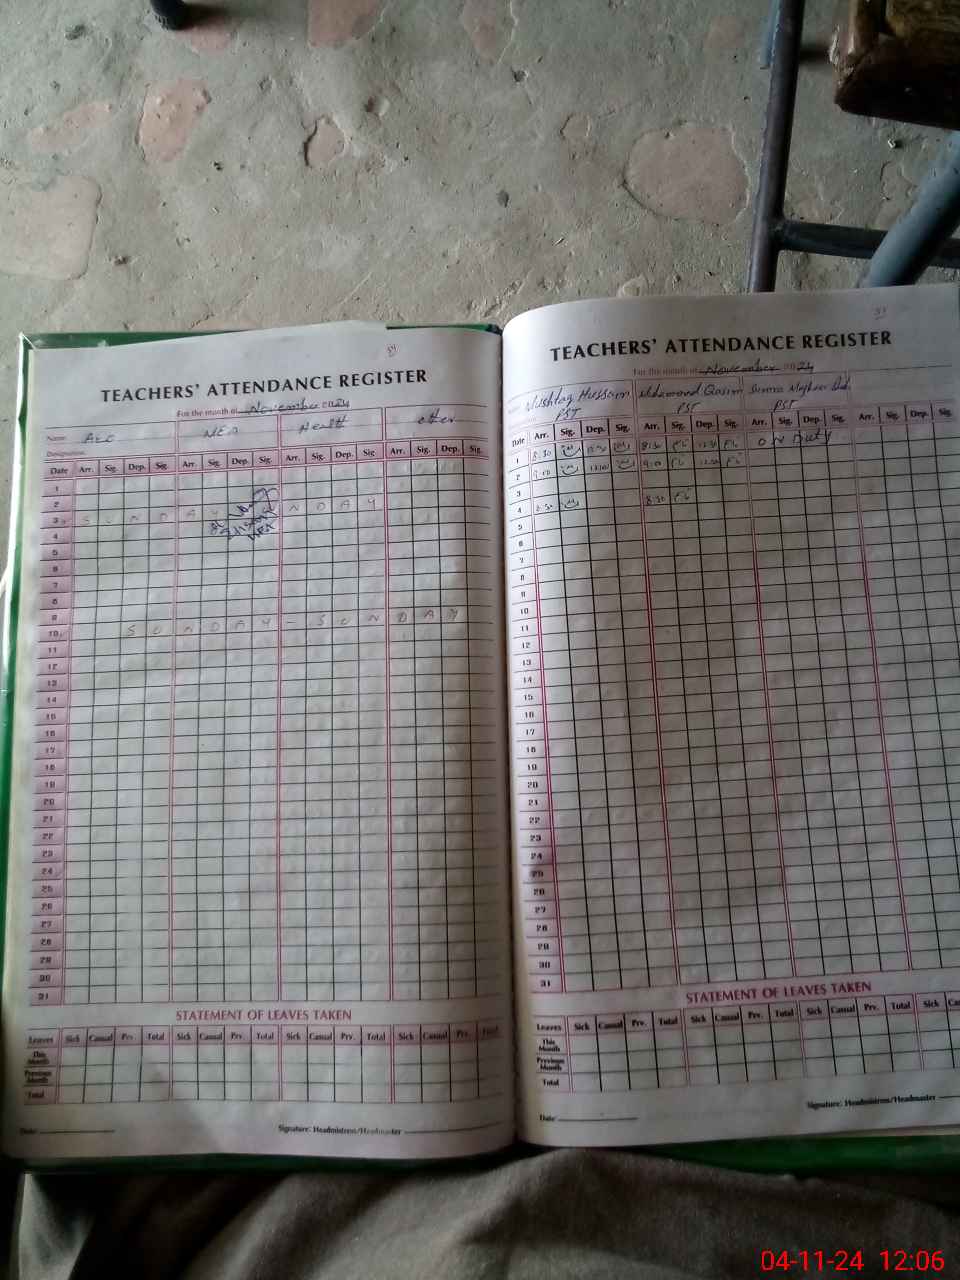 TEACHERS' ATTENDANCE REGISTER
For the month of November 2024
Name: NEA Health other
Designation:
Date Arr. Sig. Dep. Sig. Arr. Sig. Dep. Sig. Arr. Sig. Dep. Sig. Arr. Sig. Dep. Sig.
1
2
3 SUNDAY NDAY
4
5
6
7
8
9
10 SUNDAY - SUNDAY
11
12
13
14
15
16
17
18
19
20
21
22
23
24
25
26
27
28
29
30
31
STATEMENT OF LEAVES TAKEN
Leaves Sick Casual Prv. Total Sick Casual Prv. Total Sick Casual Prv. Total Sick Casual Prv. Total
This Month
Previous Month
Total
Date Signature: Headmistress/Headmaster
TEACHERS' ATTENDANCE REGISTER
For the month of November 2024
Name Mushtaq Hussain Mohammad Qasim
PST PST PST
Date Arr. Sig. Dep. Sig. Arr. Sig. Dep. Sig. Arr. Sig. Dep. Sig. Arr. Sig. Dep. Sig.
1 8:30 8:30 ON Duty
2 9:00 9:00
3
4 8:30 8:30
5
6
7
8
9
10
11
12
13
14
15
16
17
18
19
20
21
22
23
24
25
26
27
28
29
30
31
STATEMENT OF LEAVES TAKEN
Leaves Sick Casual Prv. Total Sick Casual Prv. Total Sick Casual Prv. Total Sick
This Month
Previous Month
Total
Date Signature: Headmistress/Headmaster
04-11-24 12:06